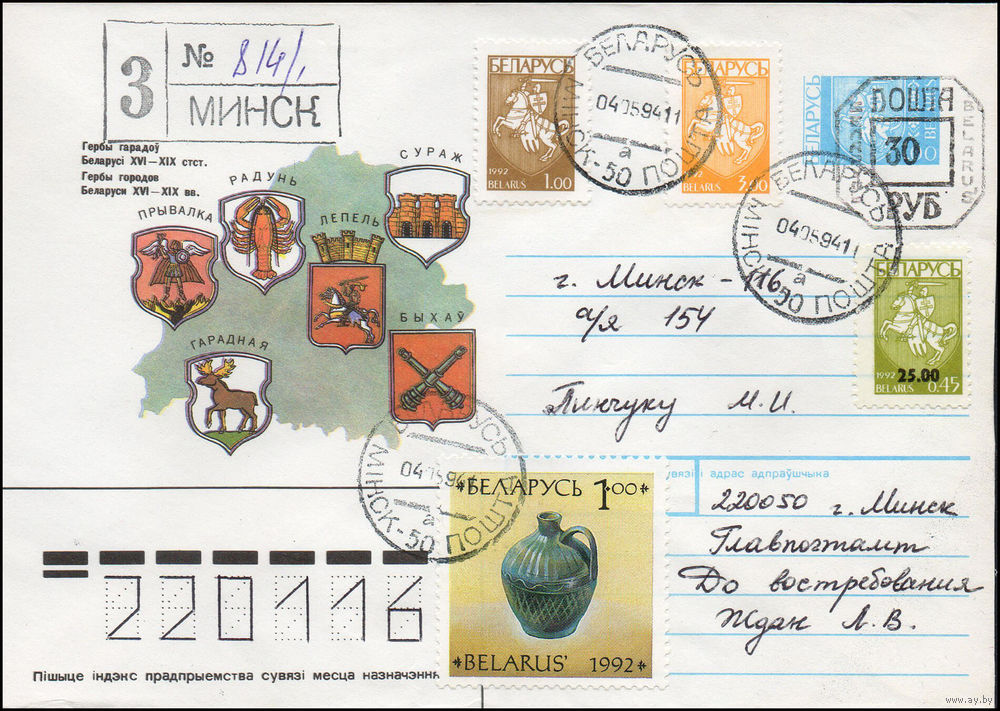 3
№ 814/1
МИНСК
Гербы гарадоў
Беларусі XVI–XIX стст.
Гербы городов
Беларуси XVI–XIX вв.
ПРЫВАЛКА
РАДУНЬ
ЛЕПЕЛЬ
СУРАЖ
ГАРАДНАЯ
БЫХАЎ
БЕЛАРУСЬ
1992
BELARUS
1.00
БЕЛАРУСЬ
1992
BELARUS
3.00
БЕЛАРУСЬ
04059411
а
МІНСК-50 ПОШТА
БЕЛАРУСЬ
ПОШТА
30
РУБ
BELARUS
МИНСК
БЕЛАРУСЬ
04059411
а
МІНСК-50 ПОШТА
БЕЛАРУСЬ
25.00
1992
BELARUS
0.45
г. Минск - 116
а/я 154
Пинчуку М.И.
сувязі і адрас адпраўшчыка
220050 г. Минск
Главпочтамт
До востребования
Ждан Л.В.
МІНСК-50 ПОШТА
а
БЕЛАРУСЬ 1.00
BELARUS' 1992
220116
Пішыце індэкс прадпрыемства сувязі месца назначэння
www.ay.by